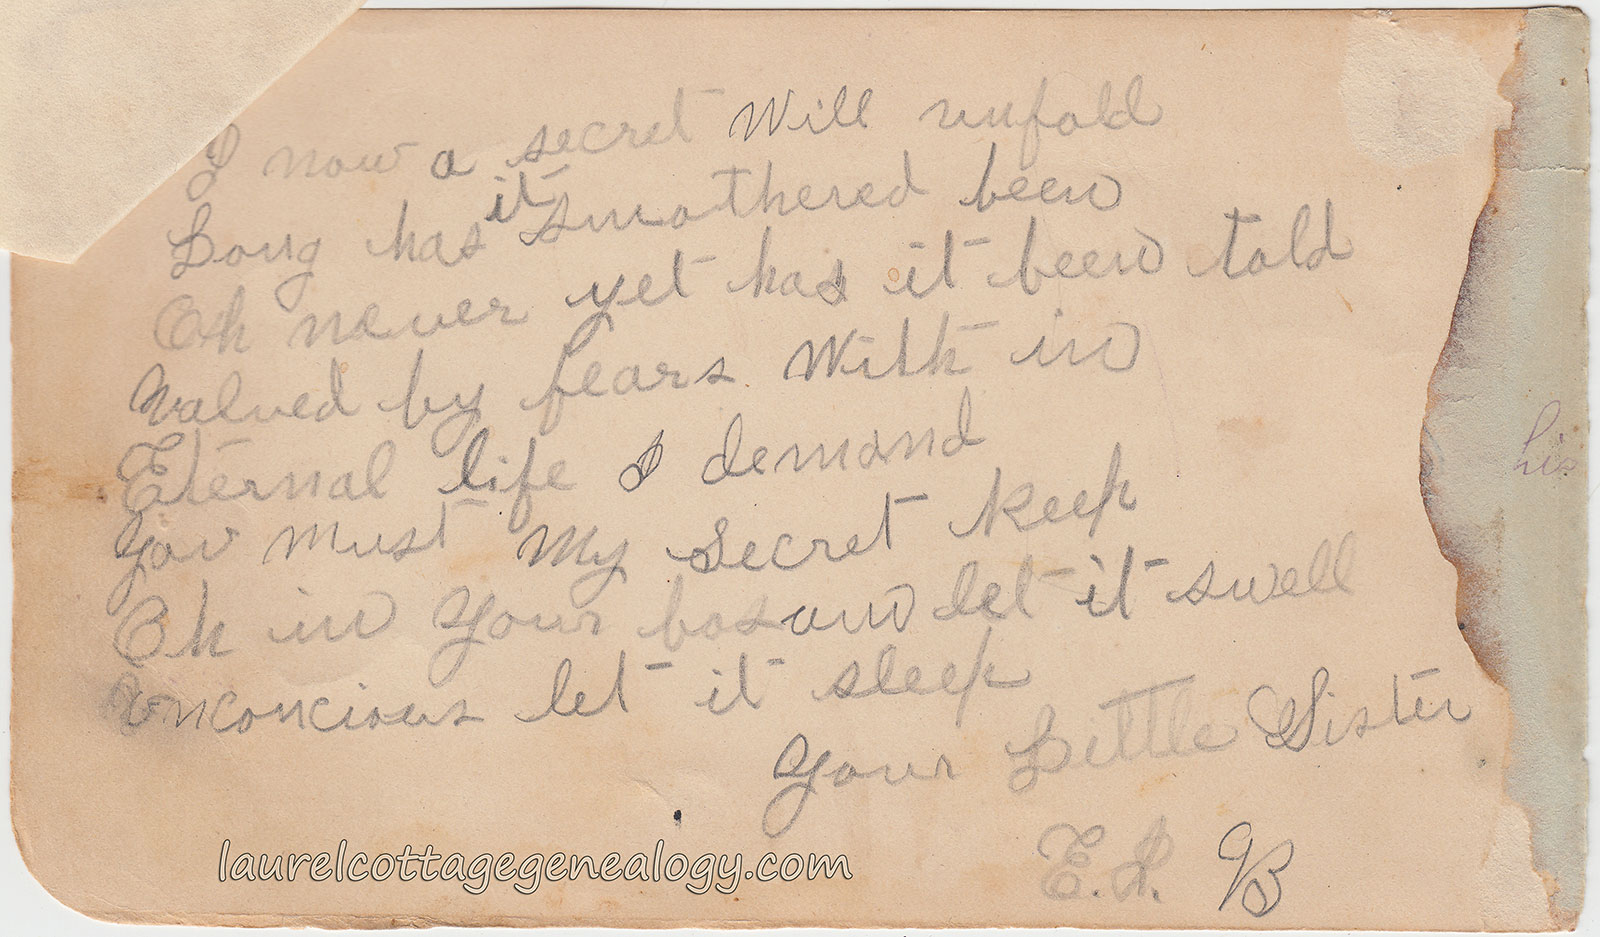 I now a secret Will unfold
Long has it smothered been
Oh never yet has it been told
Valued by fears With in
Eternal life I demand
You must My Secret keep
Oh in your bosum let it swell
Unconcious let it sleep
Your Little Sister
E. A. B
his
laurelcottagegenealogy.com